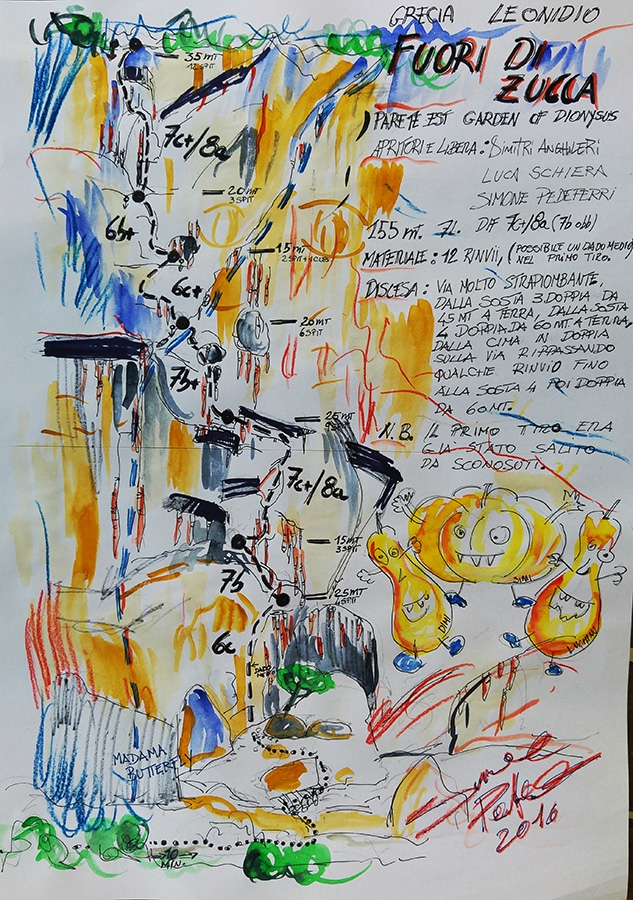 GRECIA LEONIDIO
FUORI DI
ZUCCA
PARETE EST GARDEN OF DIONYSUS
APRITORI E LIBERA: DIMITRI ANGHILERI
LUCA SCHIERA
SIMONE PEDEFERRI
155 mt. 7L. DIF 7c+/8a (7b obb)
MATERIALE: 12 RINVII, (POSSIBILE UN DADO MEDIO
NEL PRIMO TIRO.
DISCESA: VIA MOLTO STRAPIOMBANTE,
DALLA SOSTA 3 DOPPIA DA
45 MT A TERRA, DALLA SOSTA
4 DOPPIA DA 60 MT. A TERRA,
DALLA CIMA IN DOPPIA
SULLA VIA RIPASSANDO
QUALCHE RINVIO FINO
ALLA SOSTA 4 POI DOPPIA
DA 60 MT.
N.B. IL PRIMO TIRO ERA
GIÀ STATO SALITO
DA SCONOSUTI.
35 MT
12 SPIT
7c+/8a
20 mt
3 SPIT
6b+
15 mt
6c+
20 MT
6 SPIT
7b+
25 MT
9 SPIT
7c+/8a
15 MT
3 SPIT
7b
25 MT
4 SPIT
6c
DADO
SIMI
DIMI
MADAMA
BUTTERFLY
10
MIN.
2016